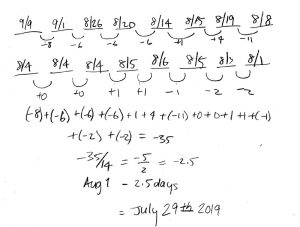 9/9 9/1 8/26 8/20 8/14 8/15 8/19 8/8
-8 -6 -6 -6 +1 +4 -11
8/4 8/4 8/4 8/5 8/6 8/5 8/3 8/1
+0 +0 +1 +1 -1 -2 -2
(-8)+(-6)+(-6)+(-6)+1+4+(-11)+0+0+1+1+(-1)
+(-2)+(-2) = -35
-35/14 = -5/2 = -2.5
Aug 1 - 2.5 days
= July 29th 2019